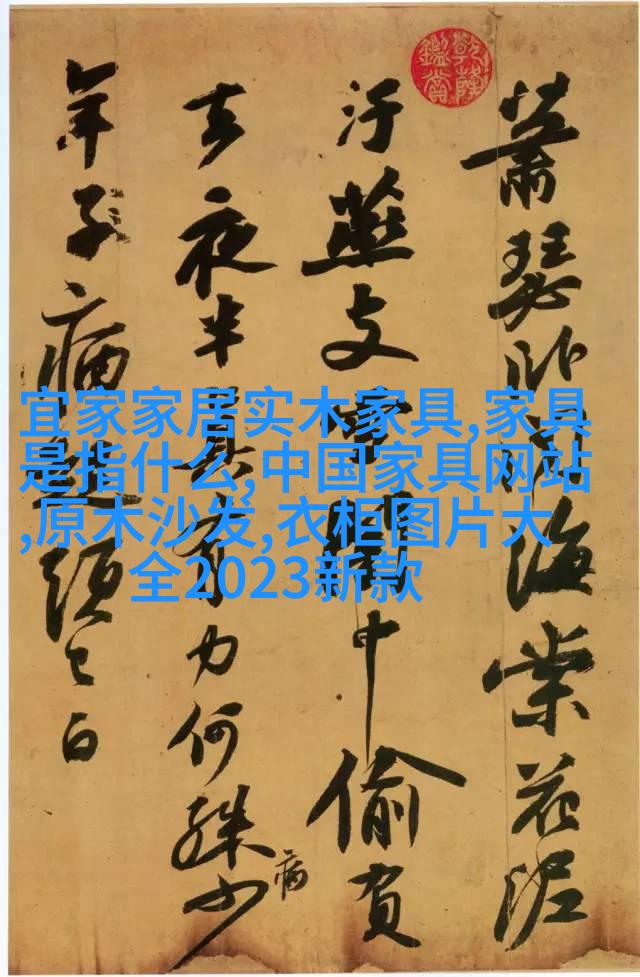 乾隆
鑑賞
蕭瑟卧聞海棠花泥
汙燕支雪闇中偷負
去夜半真有力何殊少
病
年子病起須已白
宜家家居实木家具,家具
是指什么,中国家具网站
,原木沙发,衣柜图片大
全2023新款